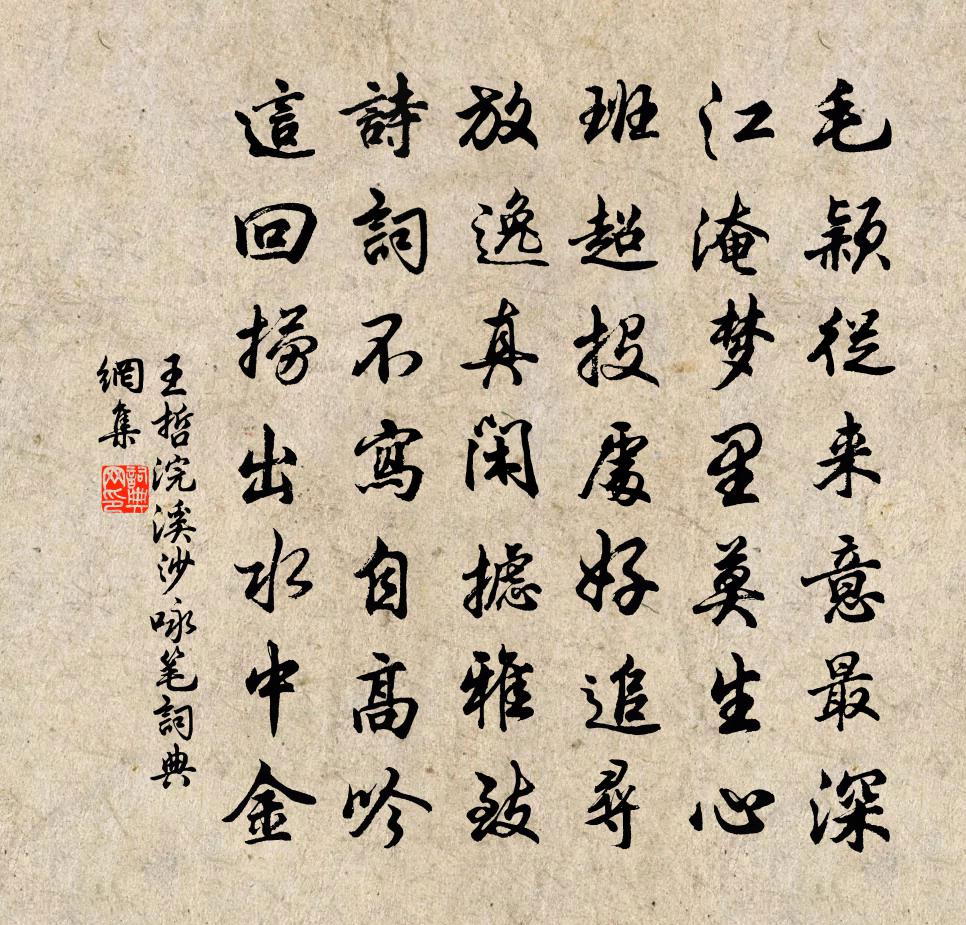 毛颖從来意最深
江淹梦里莫生心
班超投處好追尋
放逸真閑攄雅致
詩詞不寫自高吟
這回撈出水中金
王哲浣溪沙咏笔詞典
網集
詞典网印